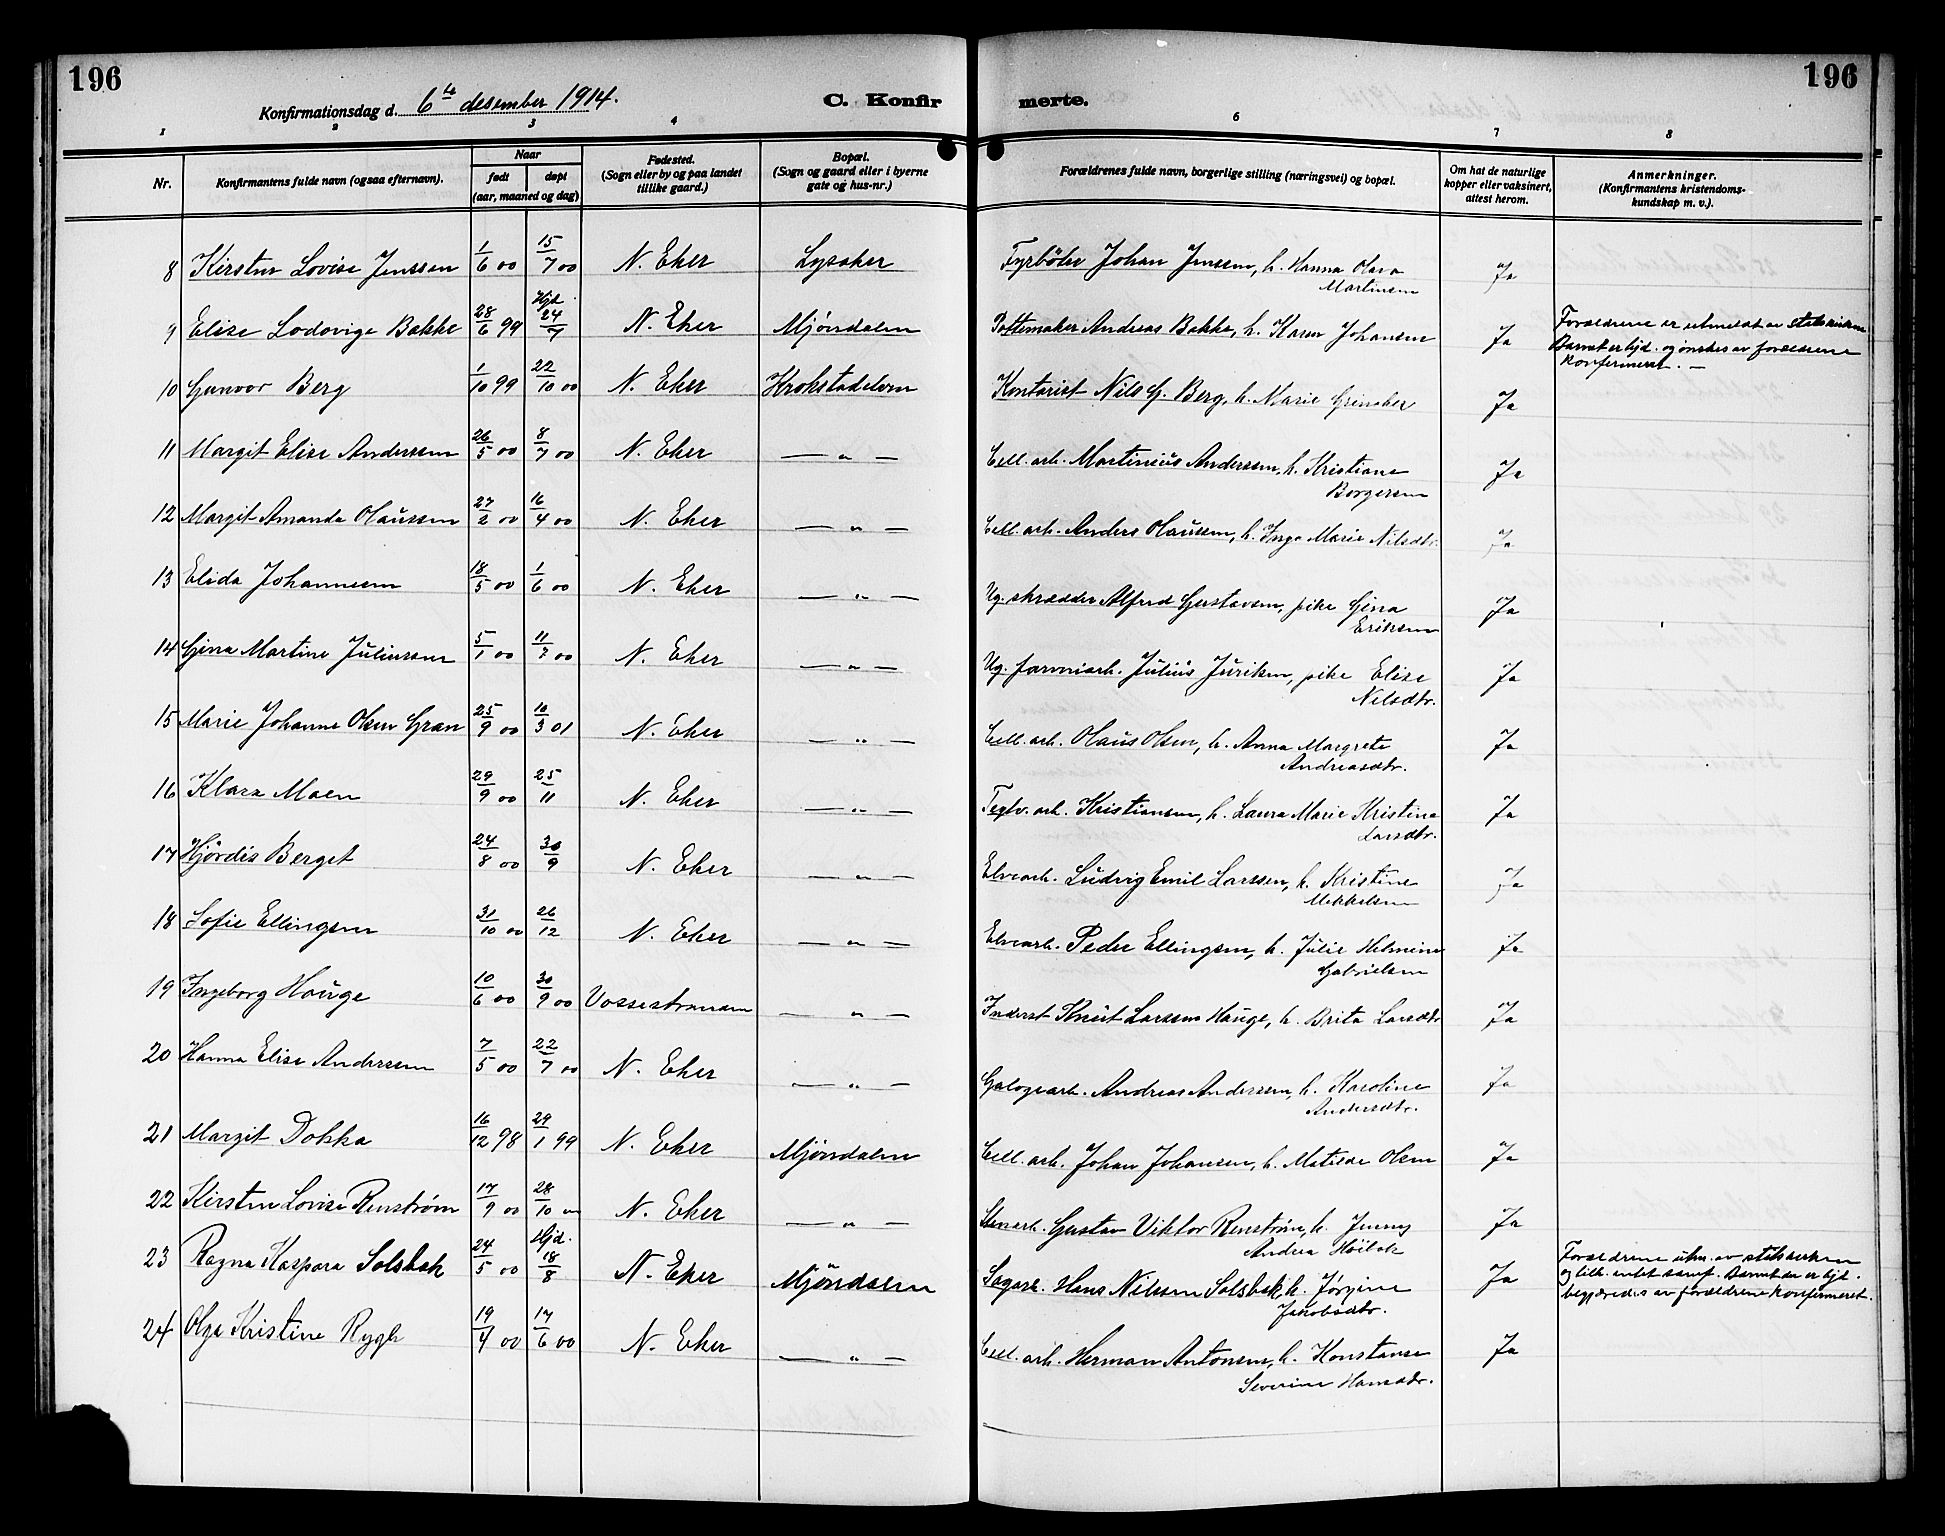 196
196
Konfirmationsdag d. 6te desember 1914.
C. Konfir
merte.
1 2 3 4 6 7 8
Nr.
Konfirmantens fulde navn (ogsaa efternavn).
Naar
født
døpt
(aar, maaned og dag)
Fødested.
(Sogn eller by og paa landet
tillike gaard.)
Bopæl.
(Sogn og gaard eller i byerne
gate og hus-nr.)
Forældrenes fulde navn, borgerlige stilling (næringsvei) og bopæl.
Om hat de naturlige
kopper eller vaksinert,
attest herom.
Anmerkninger.
(Konfirmantens kristendoms-
kundskap m. v.).
8 Kirsten Lovise Jenssen 1/6 00 15/7 00 N. Eker Lysaker Fyrbøter Johan Jenssen, h. Hanna Olava Ja
Martinsen
9 Elise Lodovige Bakke 28/6 99 Hjd. 24/7 N. Eker Mjöndalen Pottemaker Andreas Bakke, h. Karen Johansen Ja
Forældrene er utmeldt av statskirken
Barnet er hjd. og ønskes av forældrene
konfirmert. —
10 Gunvor Berg 1/10 99 22/10 00 N. Eker Krokstadelven Kontorist Nils G. Berg, h. Marie Grinaker Ja
11 Margit Elise Anderssen 26/5 00 8/7 00 N. Eker — " — Cell. arb. Martinius Anderssen, h. Kristiane Ja
Borgersen
12 Margit Amanda Olaussen 27/2 00 16/4 00 N. Eker — " — Cell. arb. Anders Olaussen, h. Inga Marie Nilsdtr. Ja
13 Elida Johannesen 18/5 00 1/6 00 N. Eker — " — Ug. skrædder Alfred Gustavsen, pike Gina Ja
Eriksen
14 Gina Martine Juliussen 5/1 00 11/7 00 N. Eker — " — Ug. farveriarb. Julius Juriksen, pike Elise Ja
Nilsdtr.
15 Marie Johanne Olsen Gran 25/9 00 10/3 01 N. Eker — " — Cell. arb. Olaus Olsen, h. Anna Margrete Ja
Andreasdtr.
16 Klara Moen 29/9 00 25/11 N. Eker — " — Teglv. arb. Kristiansen, h. Laura Marie Kristine Ja
Larsdtr.
17 Hjördis Berget 24/8 00 30/9 N. Eker — " — Elvearb. Ludvig Emil Larssen, h. Kristine Ja
Mikkelsen
18 Sofie Ellingsen 31/10 00 26/12 N. Eker — " — Elvearb. Peder Ellingsen, h. Julie Helmine Ja
Gabrielsen
19 Ingeborg Hauge 10/6 00 30/9 00 Vossestranden — " — Inderst Knut Larssen Hauge, h. Brita Larsdtr Ja
20 Hanna Elise Anderssen 7/5 00 22/7 00 N. Eker — " — Galogearb. Andreas Anderssen, h. Karoline Ja
Andersdtr.
21 Margit Dokka 16/12 98 29/1 99 N. Eker Mjöndalen Cell. arb. Johan Johansen, h. Matilde Olsen Ja
22 Kirsten Lovise Renström 17/9 00 28/10 00 N. Eker — " — Stenarb. Gustav Viktor Renström, h. Jenny Ja
Andrea
23 Ragna Kaspara Solsbak 24/5 00 Hjd. 18/8 N. Eker Mjöndalen Sagarb. Hans Nilssen Solsbak, h. Jörgine Ja
Jakobsdtr.
Forældrene utm. av statskirken
og tilh. intet samf. Barnet er hjd.
begjæredes av forældrene konfirmeret.
24 Olga Kristine Rygh 19/4 00 17/6 00 N. Eker — " — Cell. arb. Herman Antonsen, h. Konstanse Ja
Severine Hansdtr.